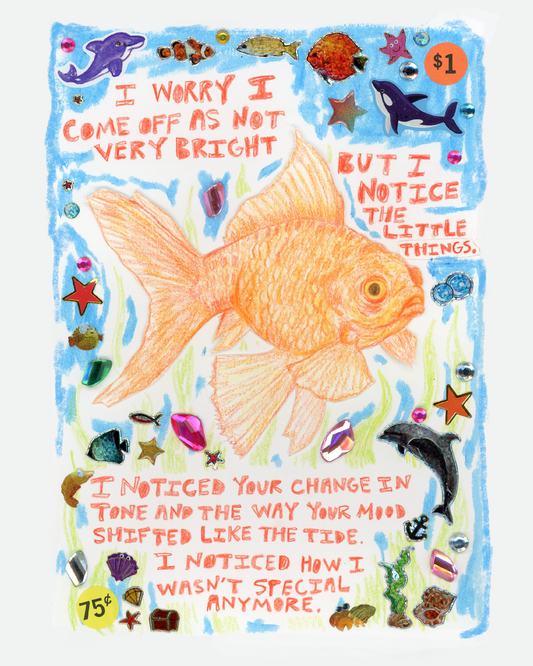 $1
I WORRY I
COME OFF AS NOT
VERY BRIGHT
BUT I
NOTICE
THE
LITTLE
THINGS.
I NOTICED YOUR CHANGE IN
TONE AND THE WAY YOUR MOOD
SHIFTED LIKE THE TIDE.
I NOTICED HOW I
WASN'T SPECIAL
ANYMORE.
75¢